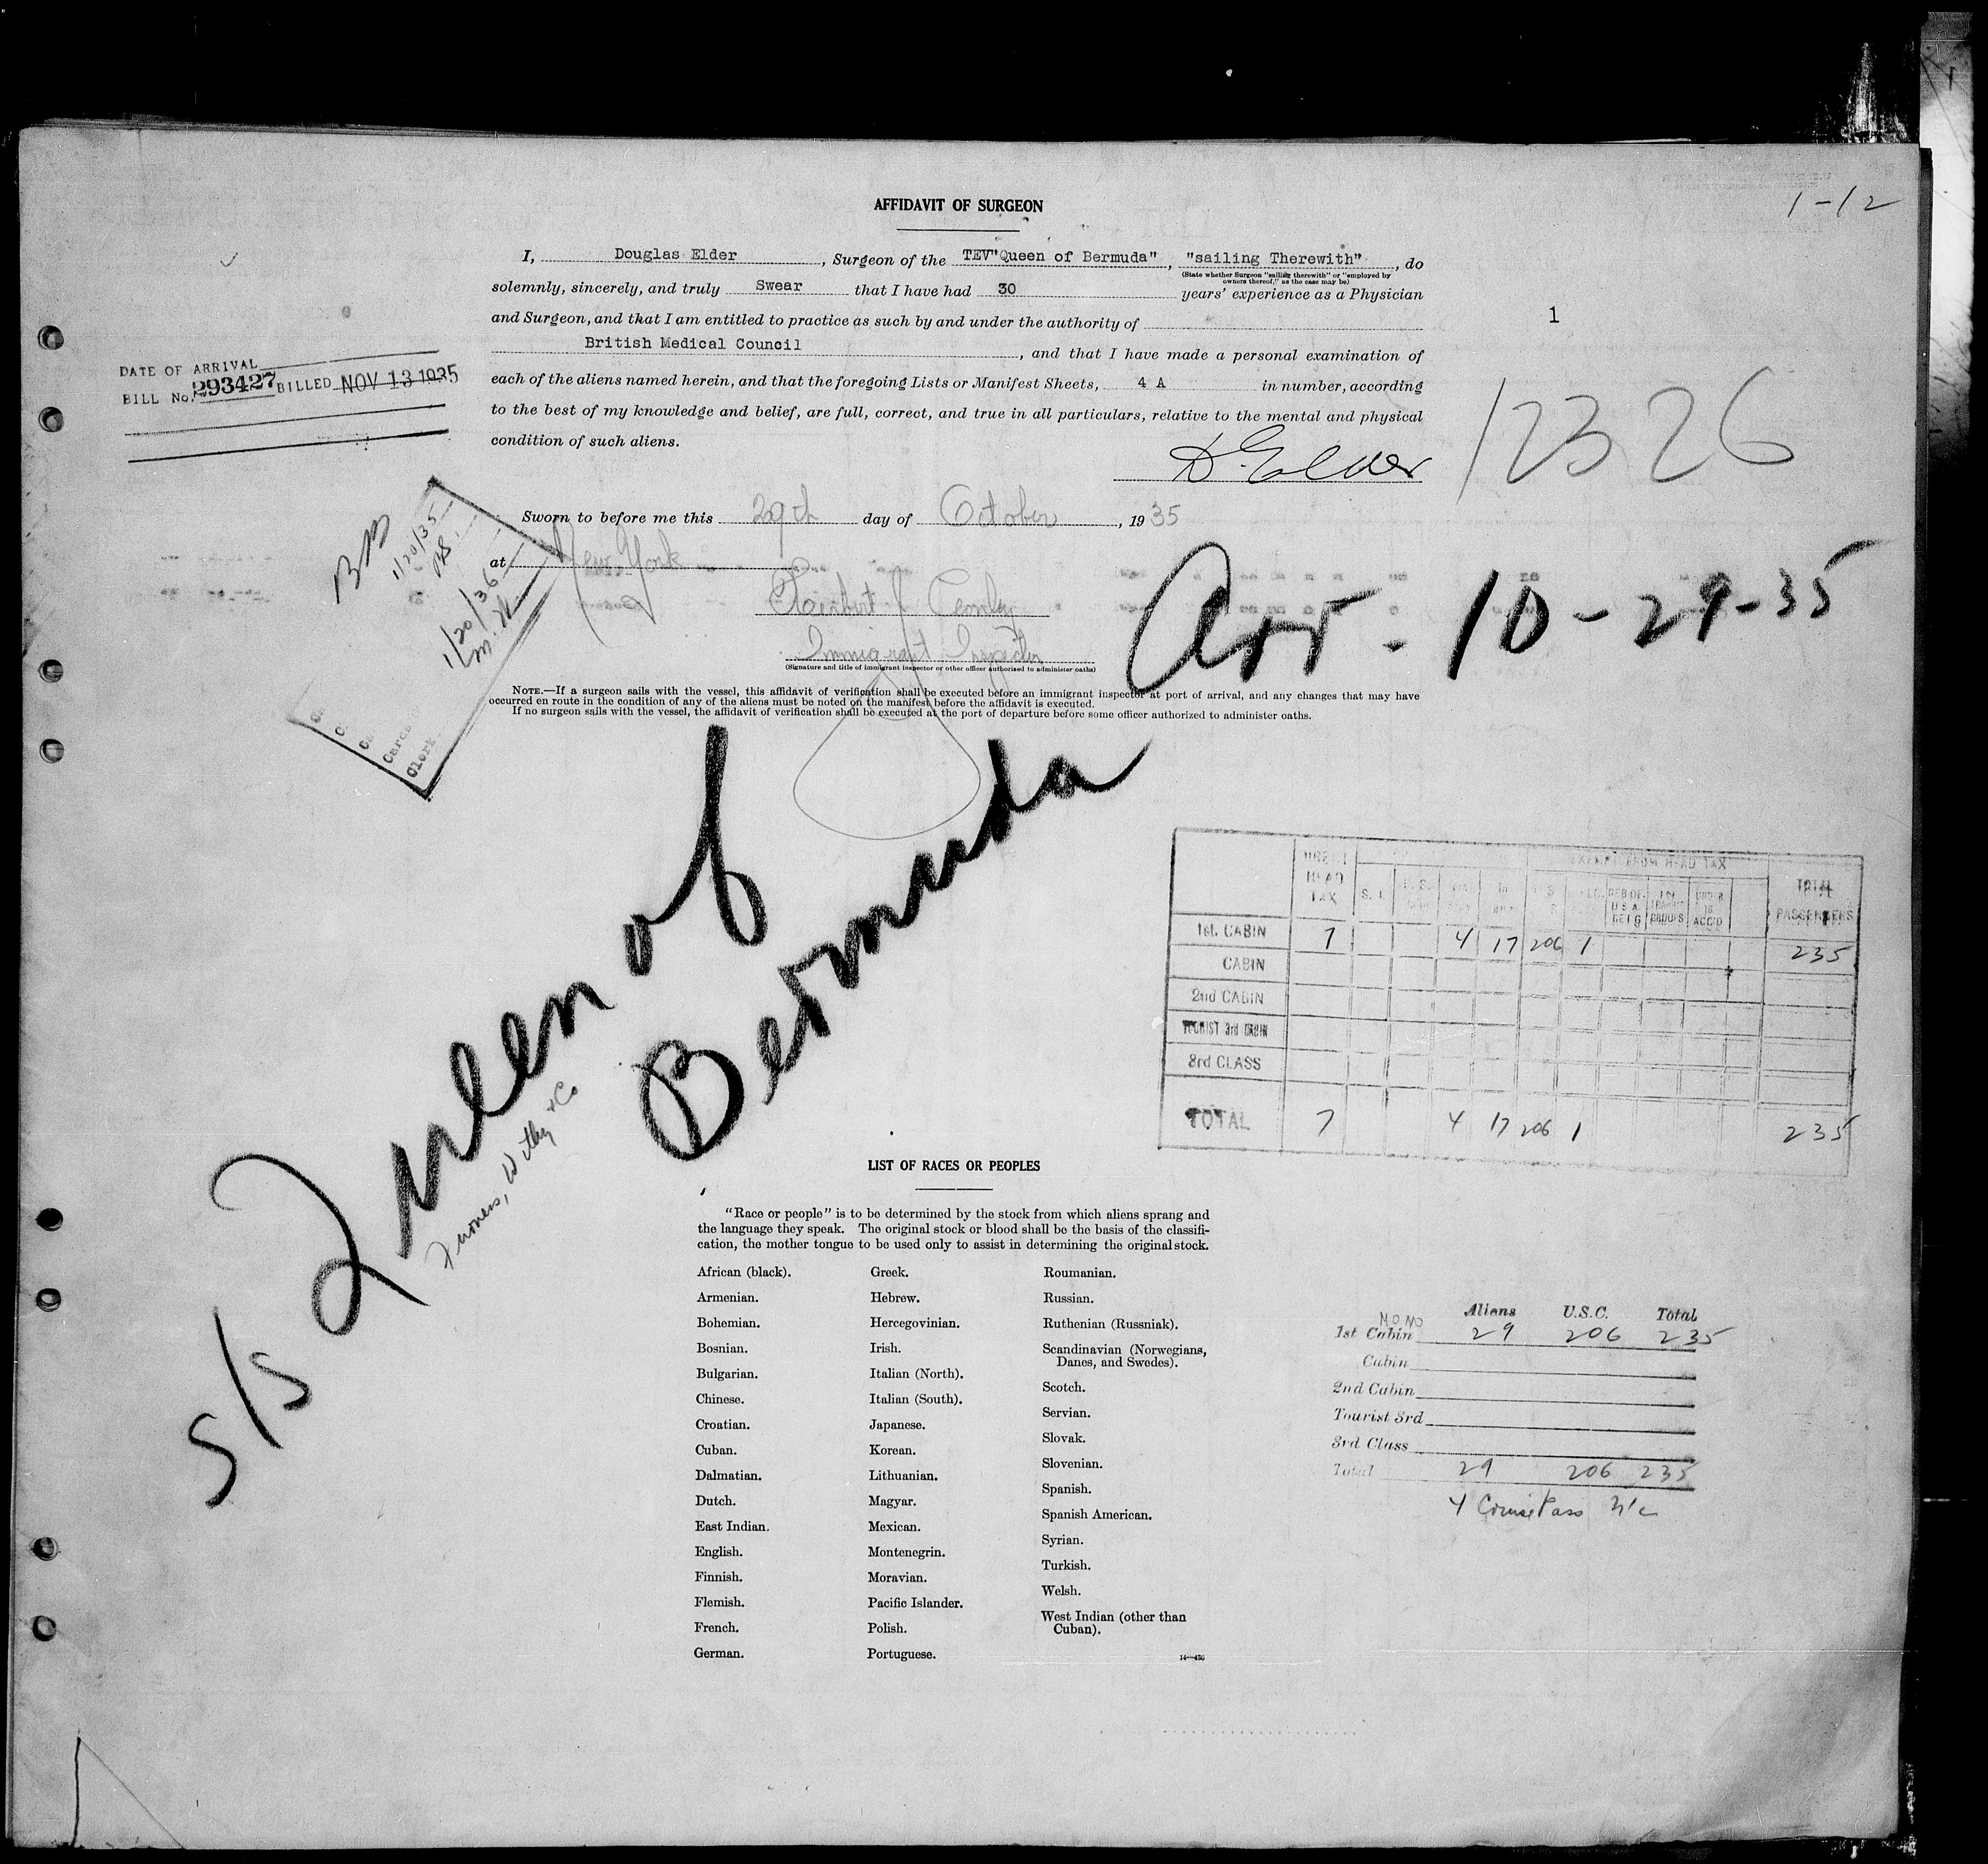 1-12
AFFIDAVIT OF SURGEON
I, Douglas Elder, Surgeon of the TEV"Queen of Bermuda", "sailing Therewith", do
(State whether Surgeon "sailing therewith" or "employed by
owners thereof," as the case may be)
solemnly, sincerely, and truly Swear that I have had 30 years' experience as a Physician
and Surgeon, and that I am entitled to practice as such by and under the authority of
British Medical Council, and that I have made a personal examination of
each of the aliens named herein, and that the foregoing Lists or Manifest Sheets, 4 A in number, according
to the best of my knowledge and belief, are full, correct, and true in all particulars, relative to the mental and physical
condition of such aliens.
1
DATE OF ARRIVAL
BILL No. 293427 BILLED NOV 13 1935
12326
D. Elder
Sworn to before me this 29th day of October, 1935
at New York
Immigrant Inspector
(Signature and title of immigrant inspector or other officer authorized to administer oaths)
BB
1/20/35
1/20/36
Cards
Clerk
Arr. 10-29-35
NOTE.—If a surgeon sails with the vessel, this affidavit of verification shall be executed before an immigrant inspector at port of arrival, and any changes that may have
occurred en route in the condition of any of the aliens must be noted on the manifest before the affidavit is executed.
If no surgeon sails with the vessel, the affidavit of verification shall be executed at the port of departure before some officer authorized to administer oaths.
S/S Queen of
Bermuda
Furness, Withy & Co
HEAD
TAX
EXEMPT FROM HEAD TAX
TOTAL
PASSENGERS
1st. CABIN 7 4 17 206 1 235
CABIN
2nd CABIN
TOURIST 3rd CABIN
3rd CLASS
TOTAL 7 4 17 206 1 235
LIST OF RACES OR PEOPLES
"Race or people" is to be determined by the stock from which aliens sprang and
the language they speak. The original stock or blood shall be the basis of the classifi-
cation, the mother tongue to be used only to assist in determining the original stock.
African (black).
Armenian.
Bohemian.
Bosnian.
Bulgarian.
Chinese.
Croatian.
Cuban.
Dalmatian.
Dutch.
East Indian.
English.
Finnish.
Flemish.
French.
German.
Greek.
Hebrew.
Hercegovinian.
Irish.
Italian (North).
Italian (South).
Japanese.
Korean.
Lithuanian.
Magyar.
Mexican.
Montenegrin.
Moravian.
Pacific Islander.
Polish.
Portuguese.
Roumanian.
Russian.
Ruthenian (Russniak).
Scandinavian (Norwegians,
Danes, and Swedes).
Scotch.
Servian.
Slovak.
Slovenian.
Spanish.
Spanish American.
Syrian.
Turkish.
Welsh.
West Indian (other than
Cuban).
14—456
Aliens U.S.C. Total
MONO
1st Cabin 29 206 235
Cabin
2nd Cabin
Tourist 3rd
3rd Class
Total 29 206 235
4 Cruise Pass